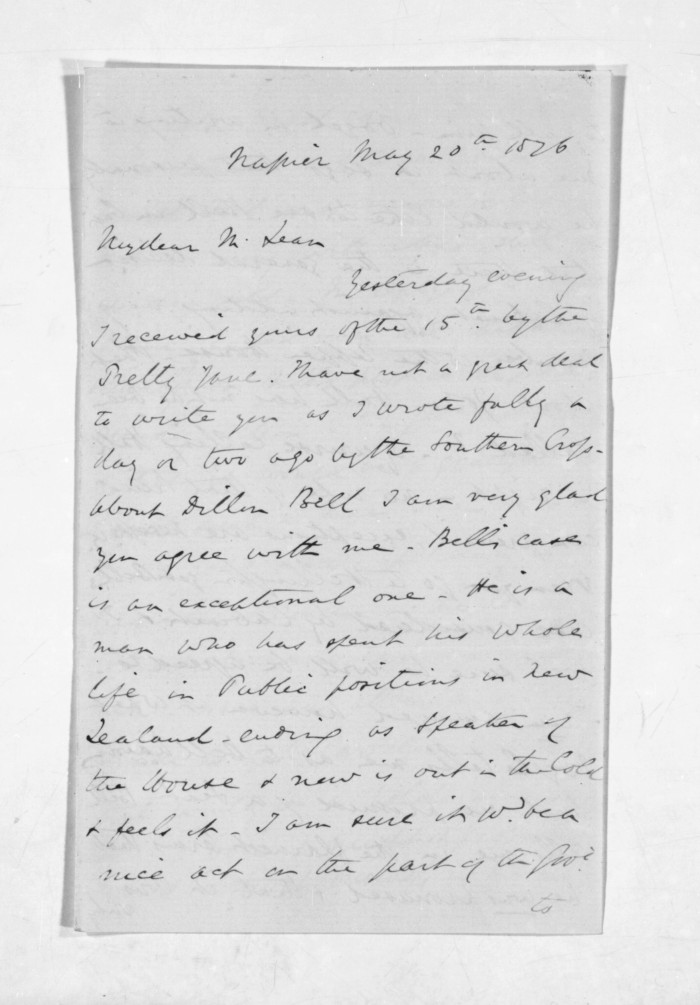 Napier May 20th 1876
My dear McLean
Yesterday evening
I received yours of the 15th by the
Pretty Jane. I have not a great deal
to write you as I wrote fully a
day or two ago by the Southern Cross-
About Dillon Bell I am very glad
you agree with me - Bell's case
is an exceptional one - He is a
man who has spent his whole
life in Public positions in New
Zealand - ending as Speaker of
the House & now is out in the Cold
& feels it - I am sure it wd. be a
nice act on the part of the Govt.
to